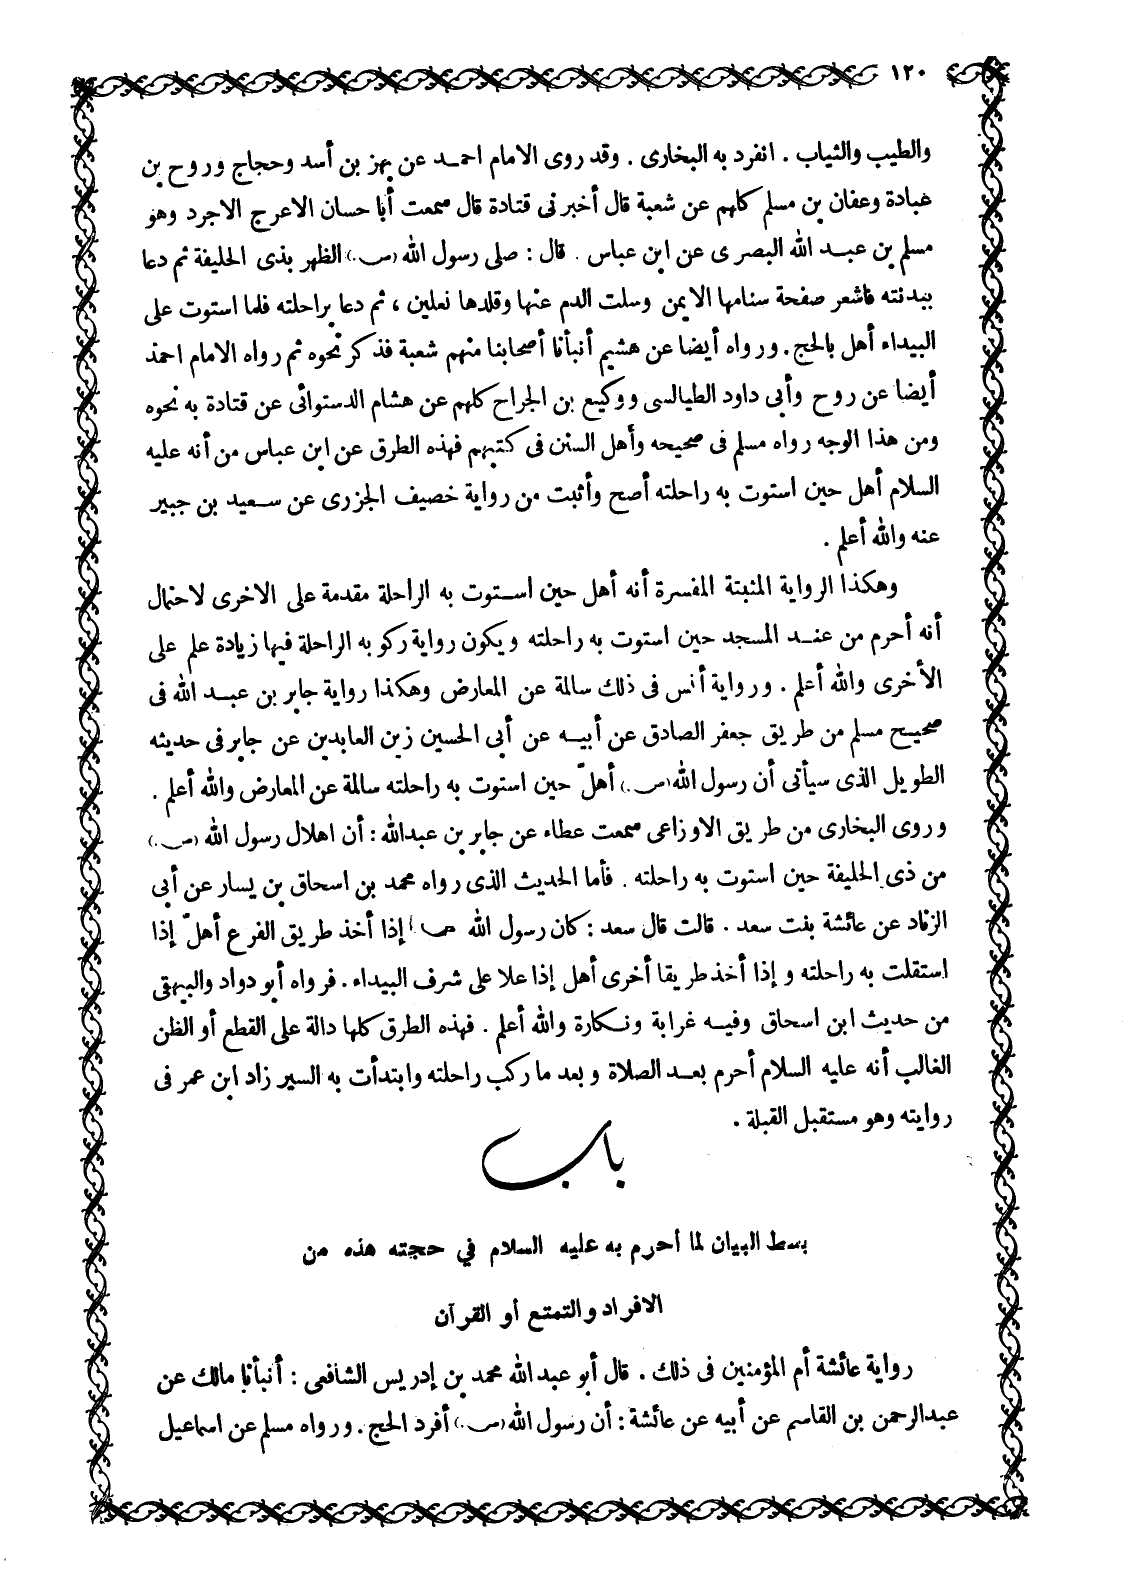 ١٢٠
والطيب والثياب . انفرد به البخارى . وقد روى الامام احمد عن بهز بن أسد وحجاج وروح بن
عبادة وعفان بن مسلم كلهم عن شعبة قال أخبرنى قتادة قال سمعت أبا حسان الاعرج الاجرد وهو
مسلم بن عبد الله البصرى عن ابن عباس . قال : صلى رسول الله (ص.) الظهر بذى الحليفة ثم دعا
ببدنته فاشعر صفحة سنامها الايمن وسلت الدم عنها وقلدها نعلين ، ثم دعا براحلته فلما استوت على
البيداء أهل بالحج . ورواه أيضا عن هشيم أنبأنا أصحابنا منهم شعبة فذكر نحوه ثم رواه الامام احمد
أيضا عن روح وأبى داود الطيالسى ووكيع بن الجراح كلهم عن هشام الدستوائى عن قتادة به نحوه
ومن هذا الوجه رواه مسلم فى صحيحه وأهل السنن فى كتبهم فهذه الطرق عن ابن عباس من أنه عليه
السلام أهل حين استوت به راحلته أصح وأثبت من رواية خصيف الجزرى عن سعيد بن جبير
عنه والله أعلم .
وهكذا الرواية المثبتة المفسرة أنه أهل حين استوت به الراحلة مقدمة على الاخرى لاحتمال
أنه أحرم من عند المسجد حين استوت به راحلته ويكون رواية ركوبه الراحلة فيها زيادة علم على
الأخرى والله أعلم . ورواية أنس فى ذلك سالمة عن المعارض وهكذا رواية جابر بن عبد الله فى
صحيح مسلم من طريق جعفر الصادق عن أبيه عن أبى الحسين زين العابدين عن جابر فى حديثه
الطويل الذى سيأتى أن رسول الله (ص.) أهلّ حين استوت به راحلته سالمة عن المعارض والله أعلم .
وروى البخارى من طريق الاوزاعى سمعت عطاء عن جابر بن عبدالله : أن اهلال رسول الله (ص.)
من ذى الحليفة حين استوت به راحلته . فأما الحديث الذى رواه محمد بن اسحاق بن يسار عن أبى
الزناد عن عائشة بنت سعد . قالت قال سعد : كان رسول الله (ص.) إذا أخذ طريق الفرع أهلّ إذا
استقلت به راحلته وإذا أخذ طريقا أخرى أهل إذا علا على شرف البيداء . فرواه أبو دواد والبيهقى
من حديث ابن اسحاق وفيه غرابة ونكارة والله أعلم . فهذه الطرق كلها دالة على القطع أو الظن
الغالب أنه عليه السلام أحرم بعد الصلاة وبعد ما ركب راحلته وابتدأت به السير زاد ابن عمر فى
روايته وهو مستقبل القبلة .
باب
بسط البيان لما أحرم به عليه السلام في حجته هذه من
الافراد والتمتع أو القرآن
رواية عائشة أم المؤمنين فى ذلك . قال أبو عبد الله محمد بن إدريس الشافعى : أنبأنا مالك عن
عبدالرحمن بن القاسم عن أبيه عن عائشة : أن رسول الله (ص.) أفرد الحج . ورواه مسلم عن اسماعيل